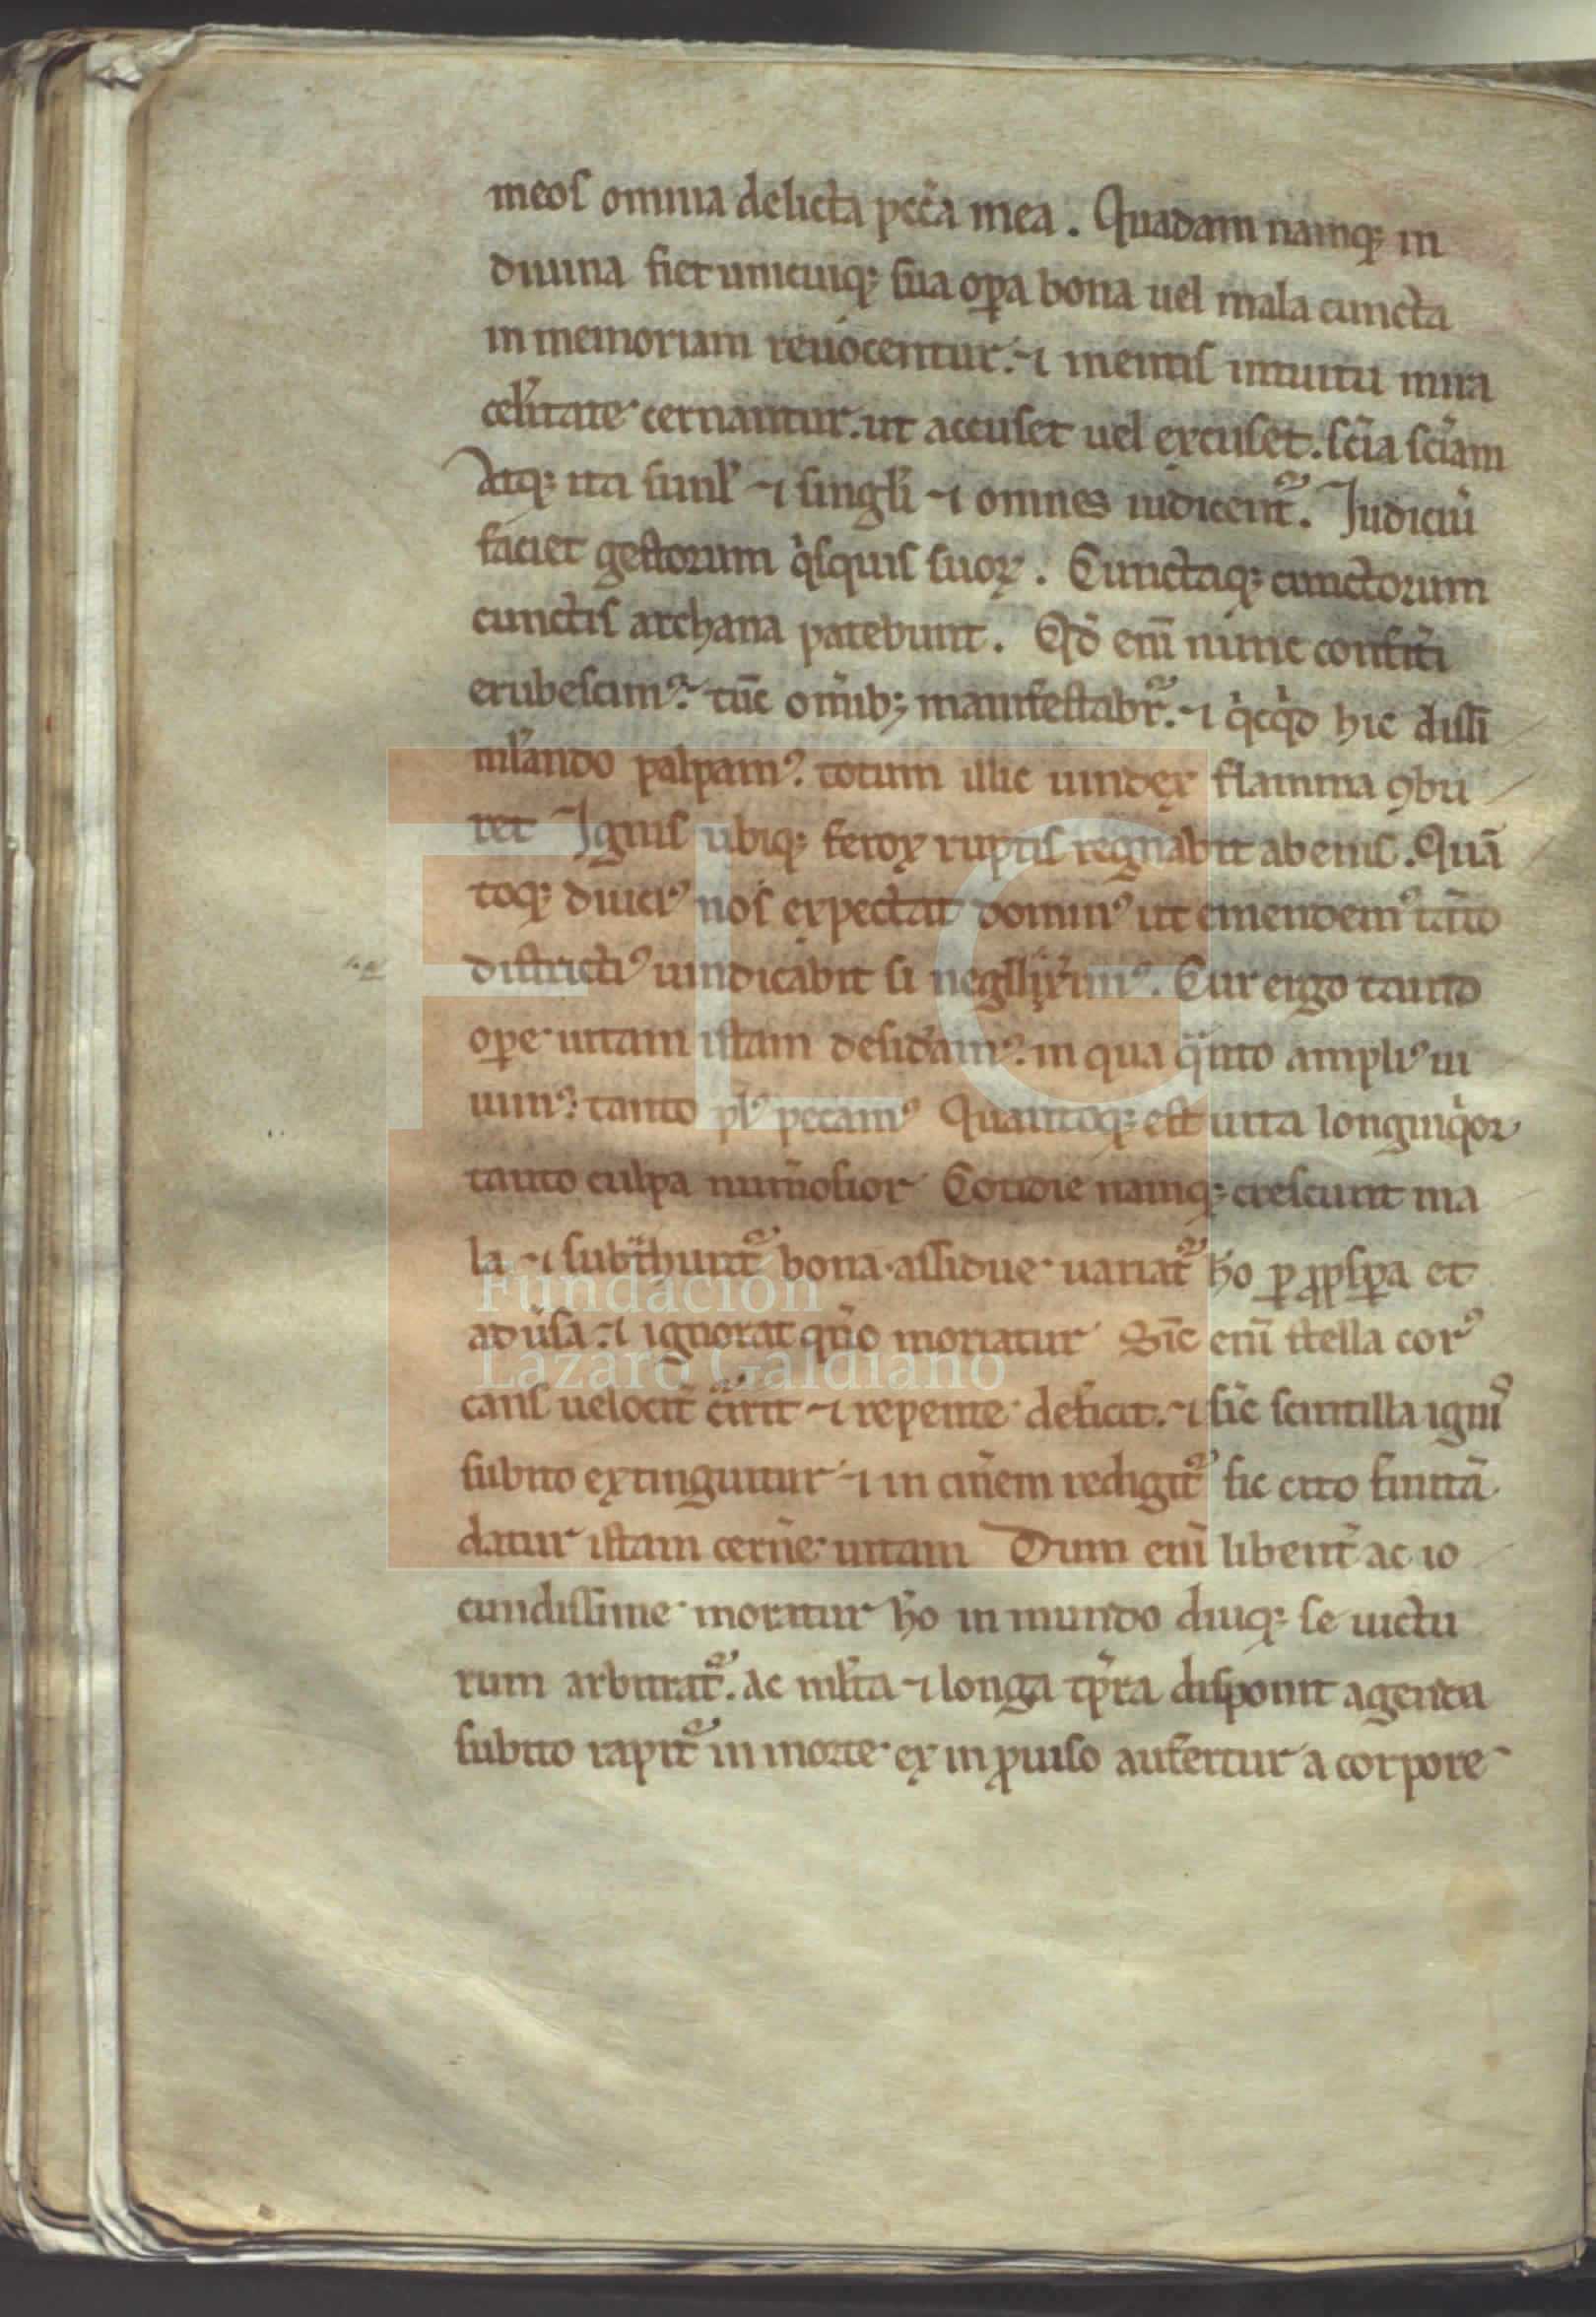 meos omnia delicta pcc̃a mea. Quadam namq; ui
diuina fiet unicuiq; sua oꝑa bona uel mala cuncta
in memoriam reuocentur. ⁊ mentis intuitu mira
cel̃itate cernantur. ut accuset uel excuset. sc̃ia sc̃iam
Atq; ita simł ⁊ singłi ⁊ omnes iudicent᷑. Judiciũ
faciet gestorum qͥsquis suoꝝ. Cunctaq; cunctorum
cunctis archana patebunt. Qđ enĩ nunc confit̃i
erubescimꝰ. tũc om̃ib; manifestabr᷑. ⁊ qͥcqͥd hic dissi
młando palpamꝰ. totum illic uindex flamma ꝯbu
ret Ignis ubiq; ferox ruptis regnabit abenis. Quã
toq; diuciꝰ nos expectat dominꝰ ut emendemꝰ tãto
districtiꝰ uindicabit si negllix̃imꝰ. Cur ergo tanto
oꝑe uitam istam desid̃amꝰ. in qua qͣnto ampliꝰ ui
uimꝰ. tanto płꝰ peccamꝰ Quantoq; est uita longinqͥor
tanto culpa num̃osior Cotidie namq; crescunt ma
la ⁊ subtͣhunt᷑ bona. assidue uariat᷑ ħo ꝑ ꝓsꝑa et
adũsa. ⁊ ignorat qñdo moriatur Sic̃ enĩ stella corꝰ
cans uelocit̃ c̃rit ⁊ repente deficit. ⁊ sic̃ scintilla ignĩs
subito extinguitur ⁊ in ciñem redigit᷑ sic cito finitã
datur istam cerñe uitam Dum enĩ libent̃ ac io
cundissime moratur ħo in mundo diuq; se uictu
rum arbitrat᷑. ac młta ⁊ longa tp̃ra disponit agenda
subito rapit᷑ in morte ex inꝓuiso aufertur a corpore
FLG
Fundación
Lázaro Galdiano